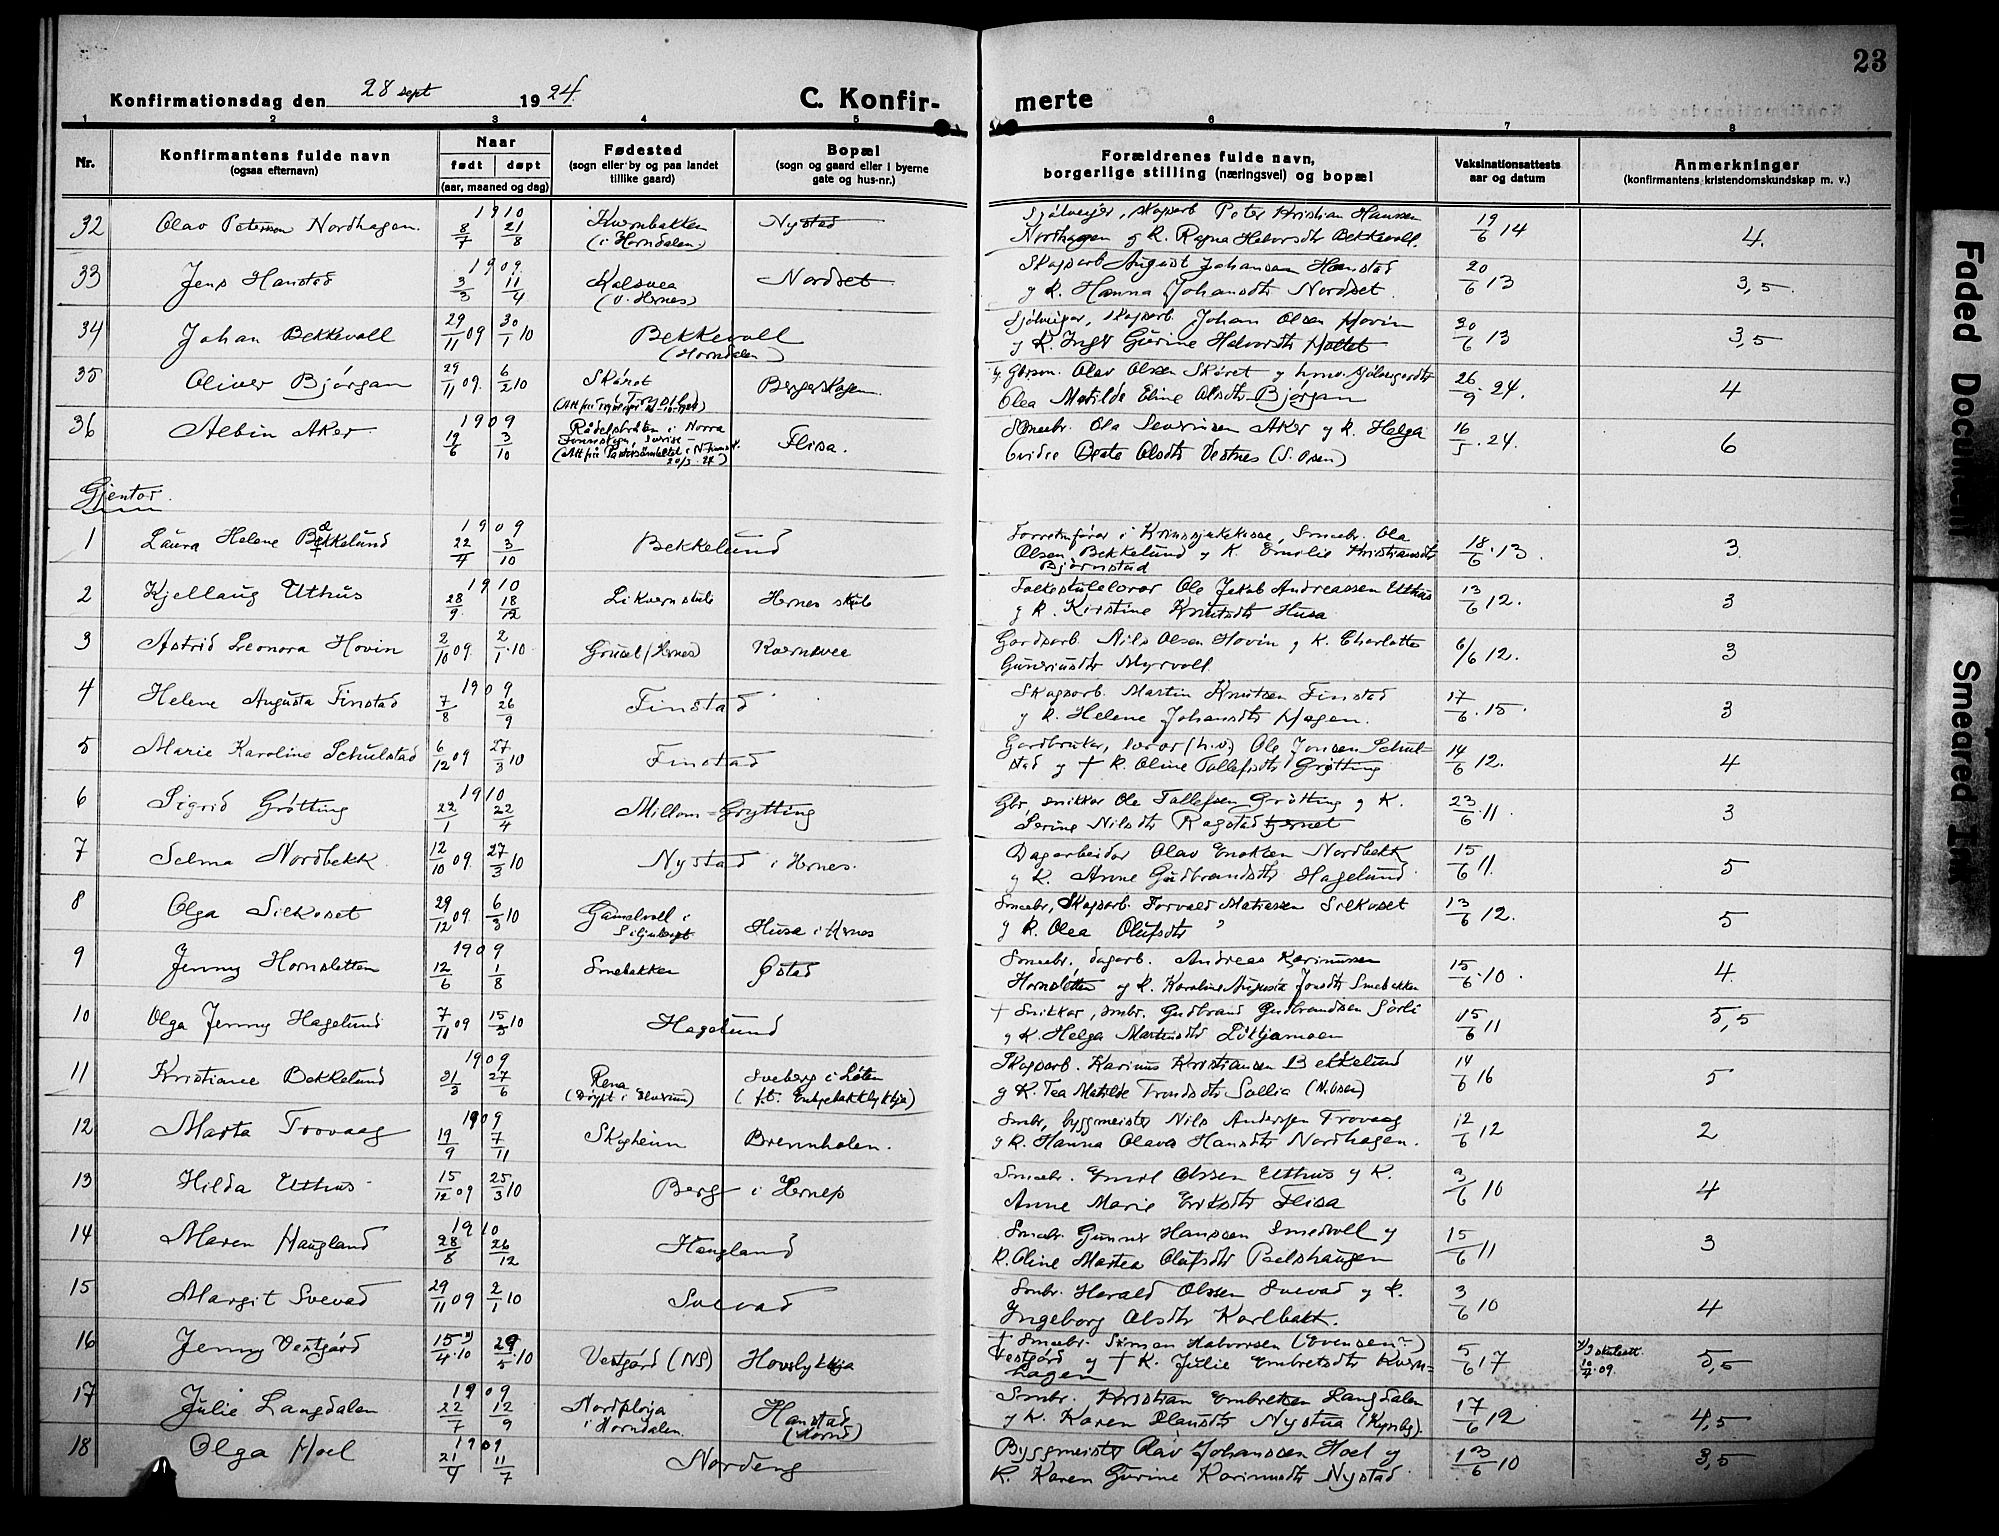 23
Konfirmationsdag den 28 sept 1924.
C. Konfir-
merte
1 2 3 4 5 6 7 8
Nr.
Konfirmantens fulde navn
(ogsaa efternavn)
Naar
født døpt
(aar, maaned og dag)
Fødested
(sogn eller by og paa landet
tillike gaard)
Bopæl
(sogn og gaard eller i byerne
gate og hus-nr.)
Forældrenes fulde navn,
borgerlige stilling (næringsvei) og bopæl
Vaksinationsattests
aar og datum
Anmerkninger
(konfirmantens kristendomskundskap m. v.)
32 Olav Peterson Nordhagen. 1910 8/7 21/8 Kvernbakken (i Horndalen) Nystad
Sjølveiger, skogsarb Peter Kristian Hanssen
Nordhagen og K. Ragna Halvorsdtr Bekkevoll. 19/6 14 4.
33 Jens Hanstad 1909. 3/3 11/4 Kolsvea (v. Hernes) Nordset
Skogsarb August Johansen Hanstad
og K. Hanna Johansdtr Nordset. 20/6 13 3,5.
34 Johan Bekkevoll 29/11 09 30/1 10 Bekkevoll (Horndalen)
Sjølveigar, skogsarb. Johan Olsen Hovin
og K. Inga Gurine Halvorsdtr Holtet 20/6 13 3,5
35 Oliver Bjørgan 29/11 09. 6/2 10 Skåret Bergerskogen.
Olav Olsen Skåret og
Olea Matilde Eline Olsdtr Bjørgan 26/9. 24. 4
36 Albin Aker. 1909 19/6 3/10 i Norra Flisa.
Småbr. Ola Severinsen Aker og K. Helga
Beate Olsdtr Vestnes (S. Osen) 16/5. 24. 6
Gjentor.
1 Laura Helene Bekkelund 1909 22/4 3/10 Bekkelund
Forretnfører i Krinssjukekasse, Småbr. Ola
Olsen Bekkelund og K. Emilie Kristiansdtr
Bjørnstad 18/6. 13. 3.
2 Kjellaug Uthus 1910 28/9. 18/12 Likvernskule Hernes skule
Folkeskulelærar Ole Jakob Andreassen Uthus
og K. Kirstine Knutsdtr Husa. 13/6 12. 3
3 Astrid Leonora Hovin 2/10 09. 2/1. 10 Grusel (Hernes) Kvernsvea
Gardsarb. Nils Olsen Hovin og K. Charlotte
Myrvoll. 6/6 12. 3
4 Helene Augusta Finstad 1909 7/8 26/9 Finstad
Skogsarb. Martin Knutsen Finstad
og K. Helene Johansdtr Hagen. 17/6. 15. 3
5 Marie Karoline Schulstad 6/12 09 27/3 10 Finstad
Gardbrukar, lærar (h.v.) Ole Jonsen Schul-
stad og † K. Oline Tollefsdtr Grøtting 14/6 12. 4
6 Sigrid Grøtting 1910 22/1 22/4 Millom=Grøtting
Gbr, snikkar Ole Tollefsen Grøtting og K.
Serine Nilsdtr Ragstadtjernet 23/6. 11. 3
7 Selma Nordbekk. 12/10 09. 27/3 10 Nystad i Hernes.
Dagarbeidar Olav Enoksen Nordbekk
og K. Anne Gudbrandsdtr Hagelund. 15/6 11. 5
8 Olga Silkoset 29/12 09. 6/3 10 Gamelvoll i Siljuberget Husa i Hernes
Småbr, Skogsarb. Torvald Matiassen Silkoset
og K. Olea Olufsdtr " 13/6 12. 5
9 Jenny Hornsletten 1909 12/6 1/8 Smebakken Østad
Småbr, dagarb. Andreas Karinussen
Hornsletten og K. Karoline Augusta Jonsdtr Smebakken 15/6. 10. 4.
10 Olga Jenny Hagelund 7/11 09 15/3 10 Hagelund
† Snikkar, småbr. Gudbrand Gudbrandsen Sørli
og K. Helga Martinsdtr Løkjamoen 15/6 11 5,5
11 Kristiane Bekkelund 1909 21/3 27/6 Rena (Døypt i Elverum) Sveberg i Løten
Skogsarb. Karinus Kristiansen Bekkelund
og K. Tea Matilde Trondsdtr Sollia (N. Osen) 14/6 16 5
12 Marta Trovaag 1909 19/9 7/11 Skogheim Brennholen.
Småbr, byggmeister Nils Andersen Trovaag
og K. Hanna Olava Hansdtr Nordhagen. 12/6 12 2
13 Hilda Uthus 15/12 09 25/3 10 Berg i Hernes
Småbr. Emil Olssen Uthus og K.
Anne Marie Eriksdtr Flisa 3/6 10 4
14 Maren Haugland 1910 28/8 26/12 Haugland
Småbr. Gunnar Hanssen Smedvoll og
K. Oline Martea Olufsdtr Paalshaugen 15/6 11 3
15 Margit Svevad 29/11 09 2/1 10 Svevad
Småbr. Harald Olssen Svevad og K.
Ingeborg Olsdtr Karlbakk. 3/6 10 4
16 Jenny Vestgård 15/4. 10 29/5. 10 Vestgård (NS) Hovslykkja
† Småbr. Simen Halvorsen (Evensen?)
Vestgård og † K. Julie Embretsdtr Kvern-
hagen 5/6 17 10/4 09. 5,5
17 Julie Langdalen 1909 22/7 12/9 i Horndalen. Hanstad (Hornd)
Småbr. Kristian Embretsen Langdalen
og K. Karen Nystua (Kynsby). 17/6 12 4,5
18 Olga Hoel 1909 21/4 11/7 Nordeng
Byggmeister Olav Johanssen Hoel og
K. Karen Gurine Karinusdtr Nystad 13/6 10 3,5
Faded Document
Smeared Ink